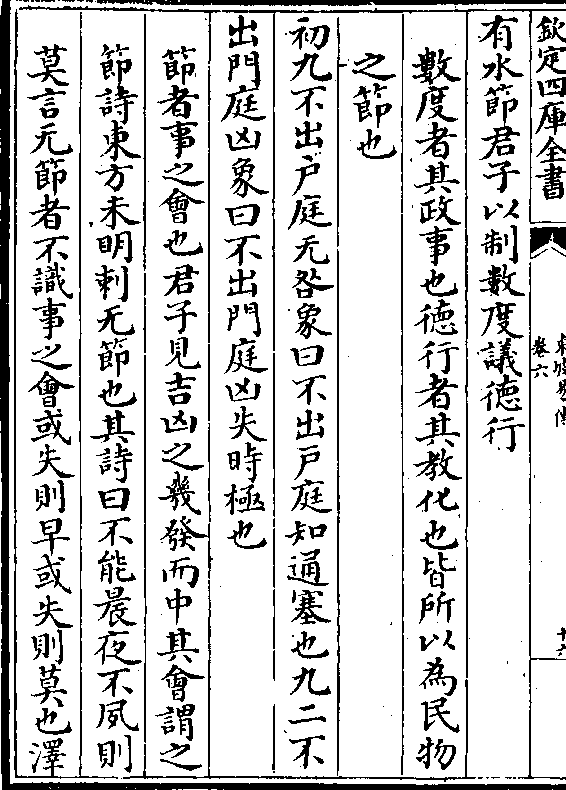 欽定四庫全書
卷六
有水節君子以制數度議徳行
數度者其政事也徳行者其教化也皆所以為民物
之節也
初九不出户庭无咎象曰不出戸庭知通塞也九二不
出門庭凶象曰不出門庭凶失時極也
節者事之會也君子見吉凶之幾發而中其會謂之
節詩東方未明刺无節也其詩曰不能晨夜不夙則
莫言无節者不識事之會或失則早或失則莫也澤